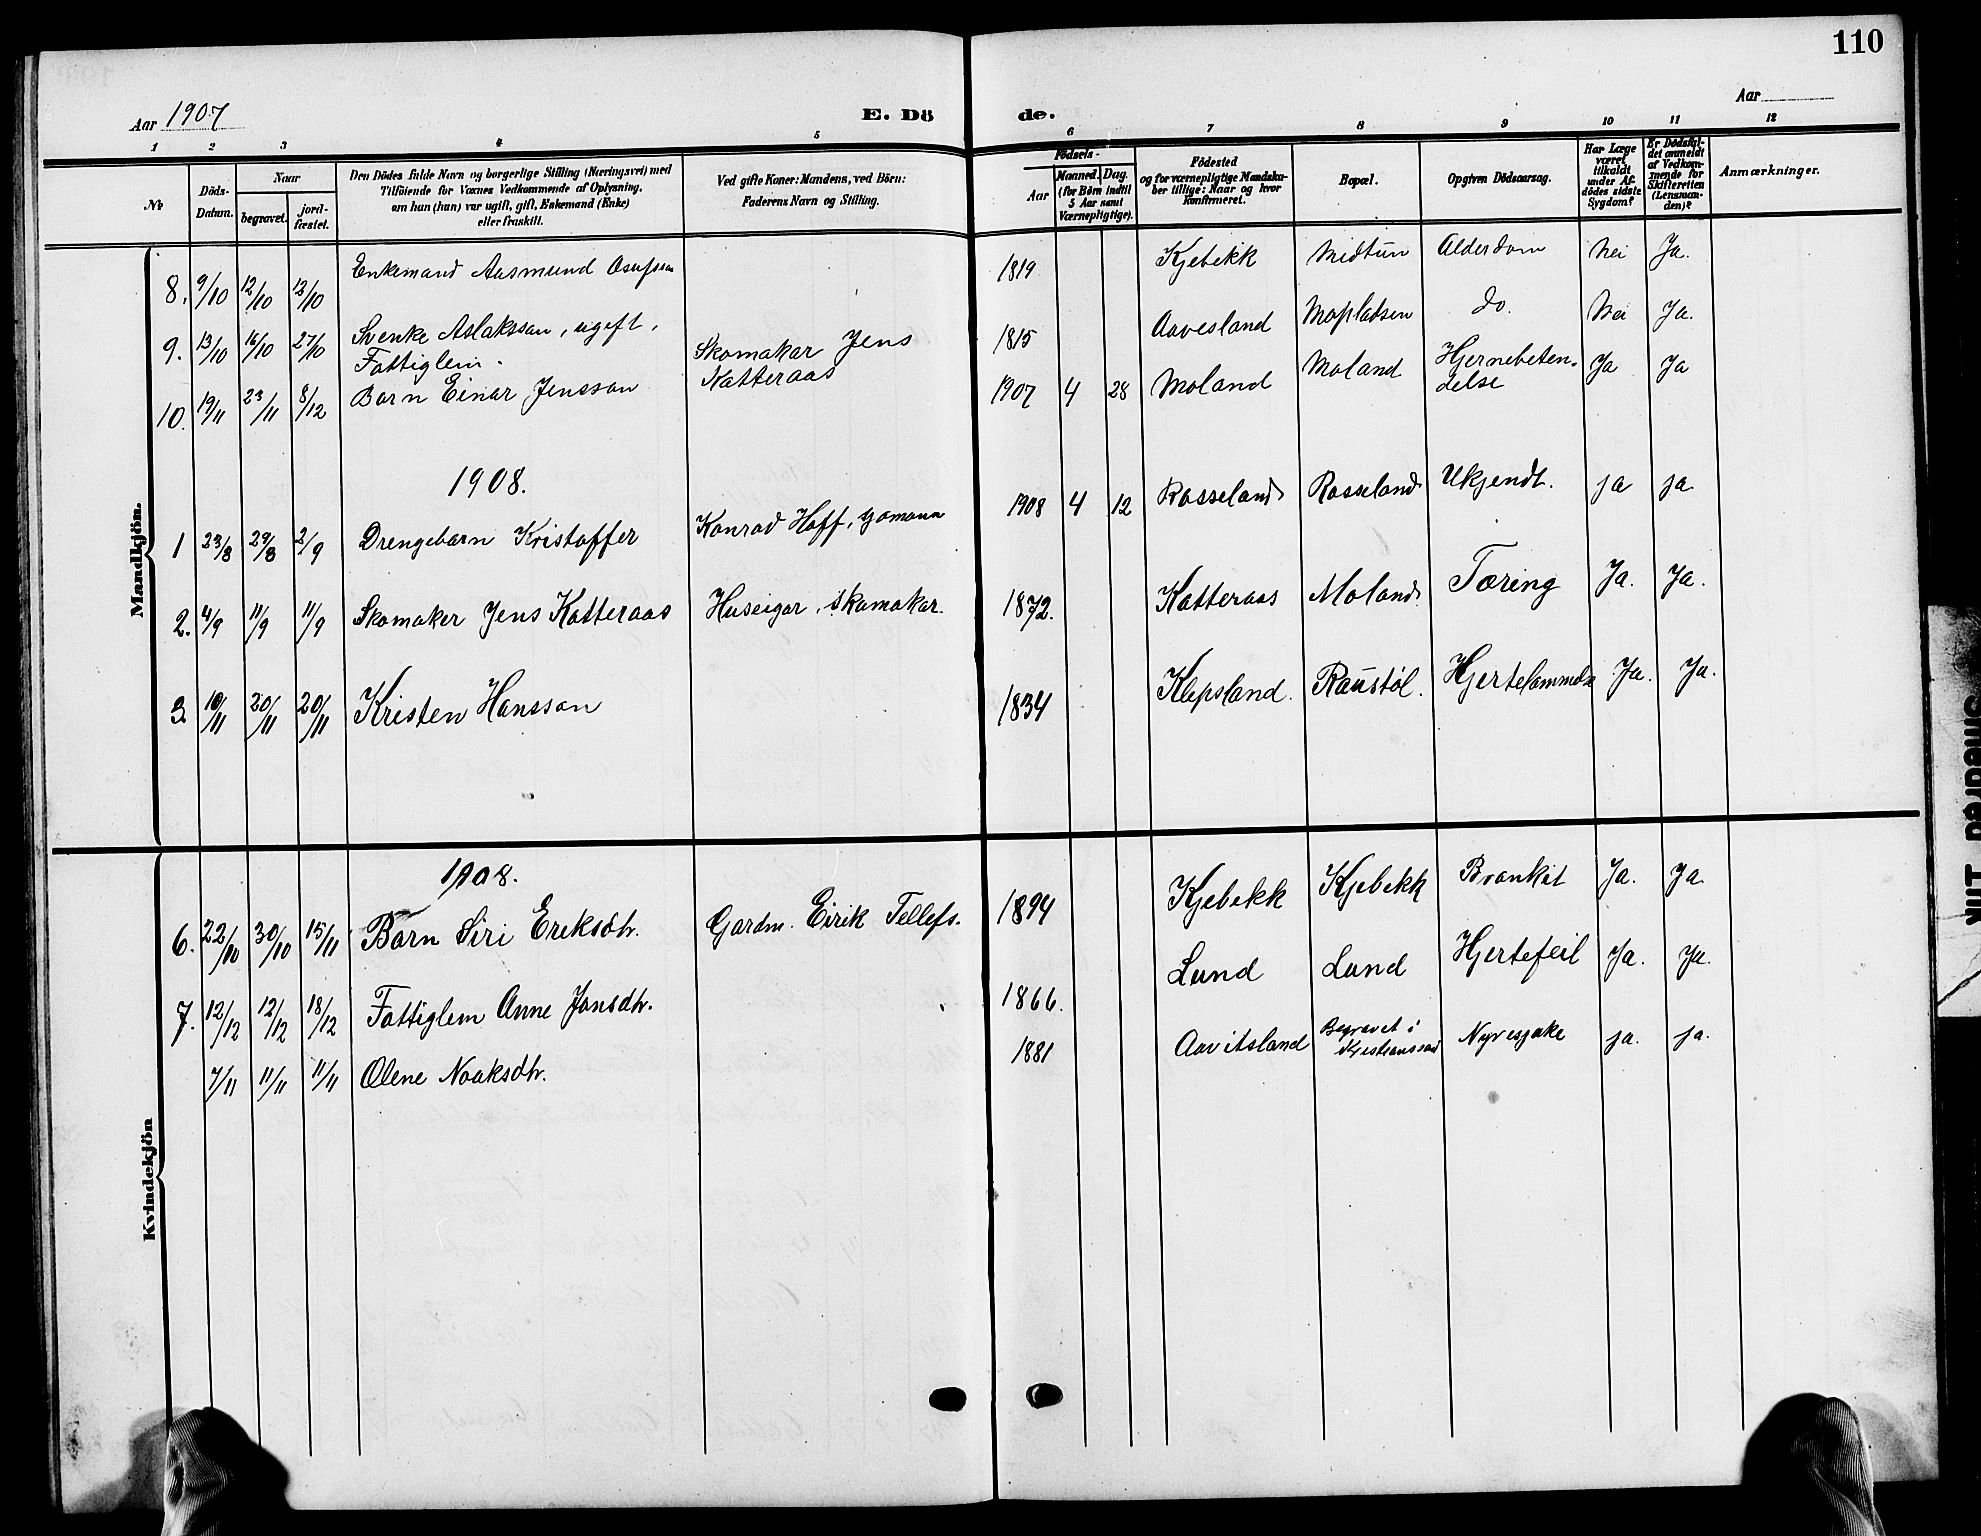 110
Aar 1907
E. Dö
de.
Aar
1 2 3 4 5 6 7 8 9 10 11 12
№
Döds-Datum.
Naar
begravet.
jord-fæstet.
Den Dödes fulde Navn og borgerlige Stilling (Næringsvei) med
Tilföiende for Voxnes Vedkommende af Oplysning,
om hun (han) var ugift, gift, Enkemand (Enke)
eller fraskilt.
Ved gifte Koner: Mandens, ved Börn:
Faderens Navn og Stilling.
Födsels-
Aar
Maaned. Dag.
(for Börn indtil
5 Aar samt
Værnepligtige).
Födested
og for værnepligtige Mandska-
ber tillige: Naar og hvor
konfirmeret.
Bopæl.
Opgiven Dödsaarsag.
Har Læge
været
tilkaldt
under Af-
dödes sidste
Sygdom?
Er Dödsfal-
det anmeldt
af Vedkom-
mende for
Skifteretten
(Lensman-
den)?
Anmærkninger.
Mandkjön.
8. 9/10 12/10 13/10 Enkemand Aasmund Osufsen 1819 Kjebekk Midtun Alderdom Nei Ja.
9. 13/10 16/10 27/10 Svenke Aslakssan, ugift, 1815 Aavesland Moplatsen do. Nei Ja.
Fattiglem.
10. 19/11 23/11 8/12 Barn Einar Jenssan Skomakar Jens 1907 4 28 Moland Moland Hjernebeten- Ja Ja
Katteraas delse
1908.
1 23/8 29/8 2/9 Drengebarn Kristoffer Konrad Hoff, sjomann 1908 4 12 Rosseland Rosseland Ukjendt. ja ja
2. 4/9 11/9 11/9 Skomaker Jens Katteraas Huseigar, skomakar. 1872. Katteraas Moland Tæring Ja. Ja.
3 10/11 20/11 20/11 Kristen Hanssan 1834 Klepsland. Raustøl. Hjertelammelse Ja. Ja.
Kvindekjön
1908.
6. 22/10 30/10 15/11 Barn Siri Eriksdtr. Gardm. Eirik Tellefs. 1894 Kjebekk Kjebekk Bronkit Ja. Ja.
7. 12/12 12/12 18/12 Fattiglem Anne Jonsdtr. 1866. Lund Lund Hjertefeil Ja. Ja.
7/11 11/11 11/11 Olene Noaksdtr. 1881 Aavitsland Begravet i Nyresjuke ja. ja.
Kristianssand